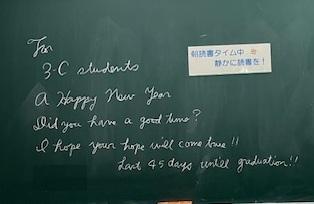 For
3-C students
A Happy New Year
Did you have a good time?
I hope your hope will come true!!
Last 45 days untill graduation!!
朝読書タイム中
静かに読書を!